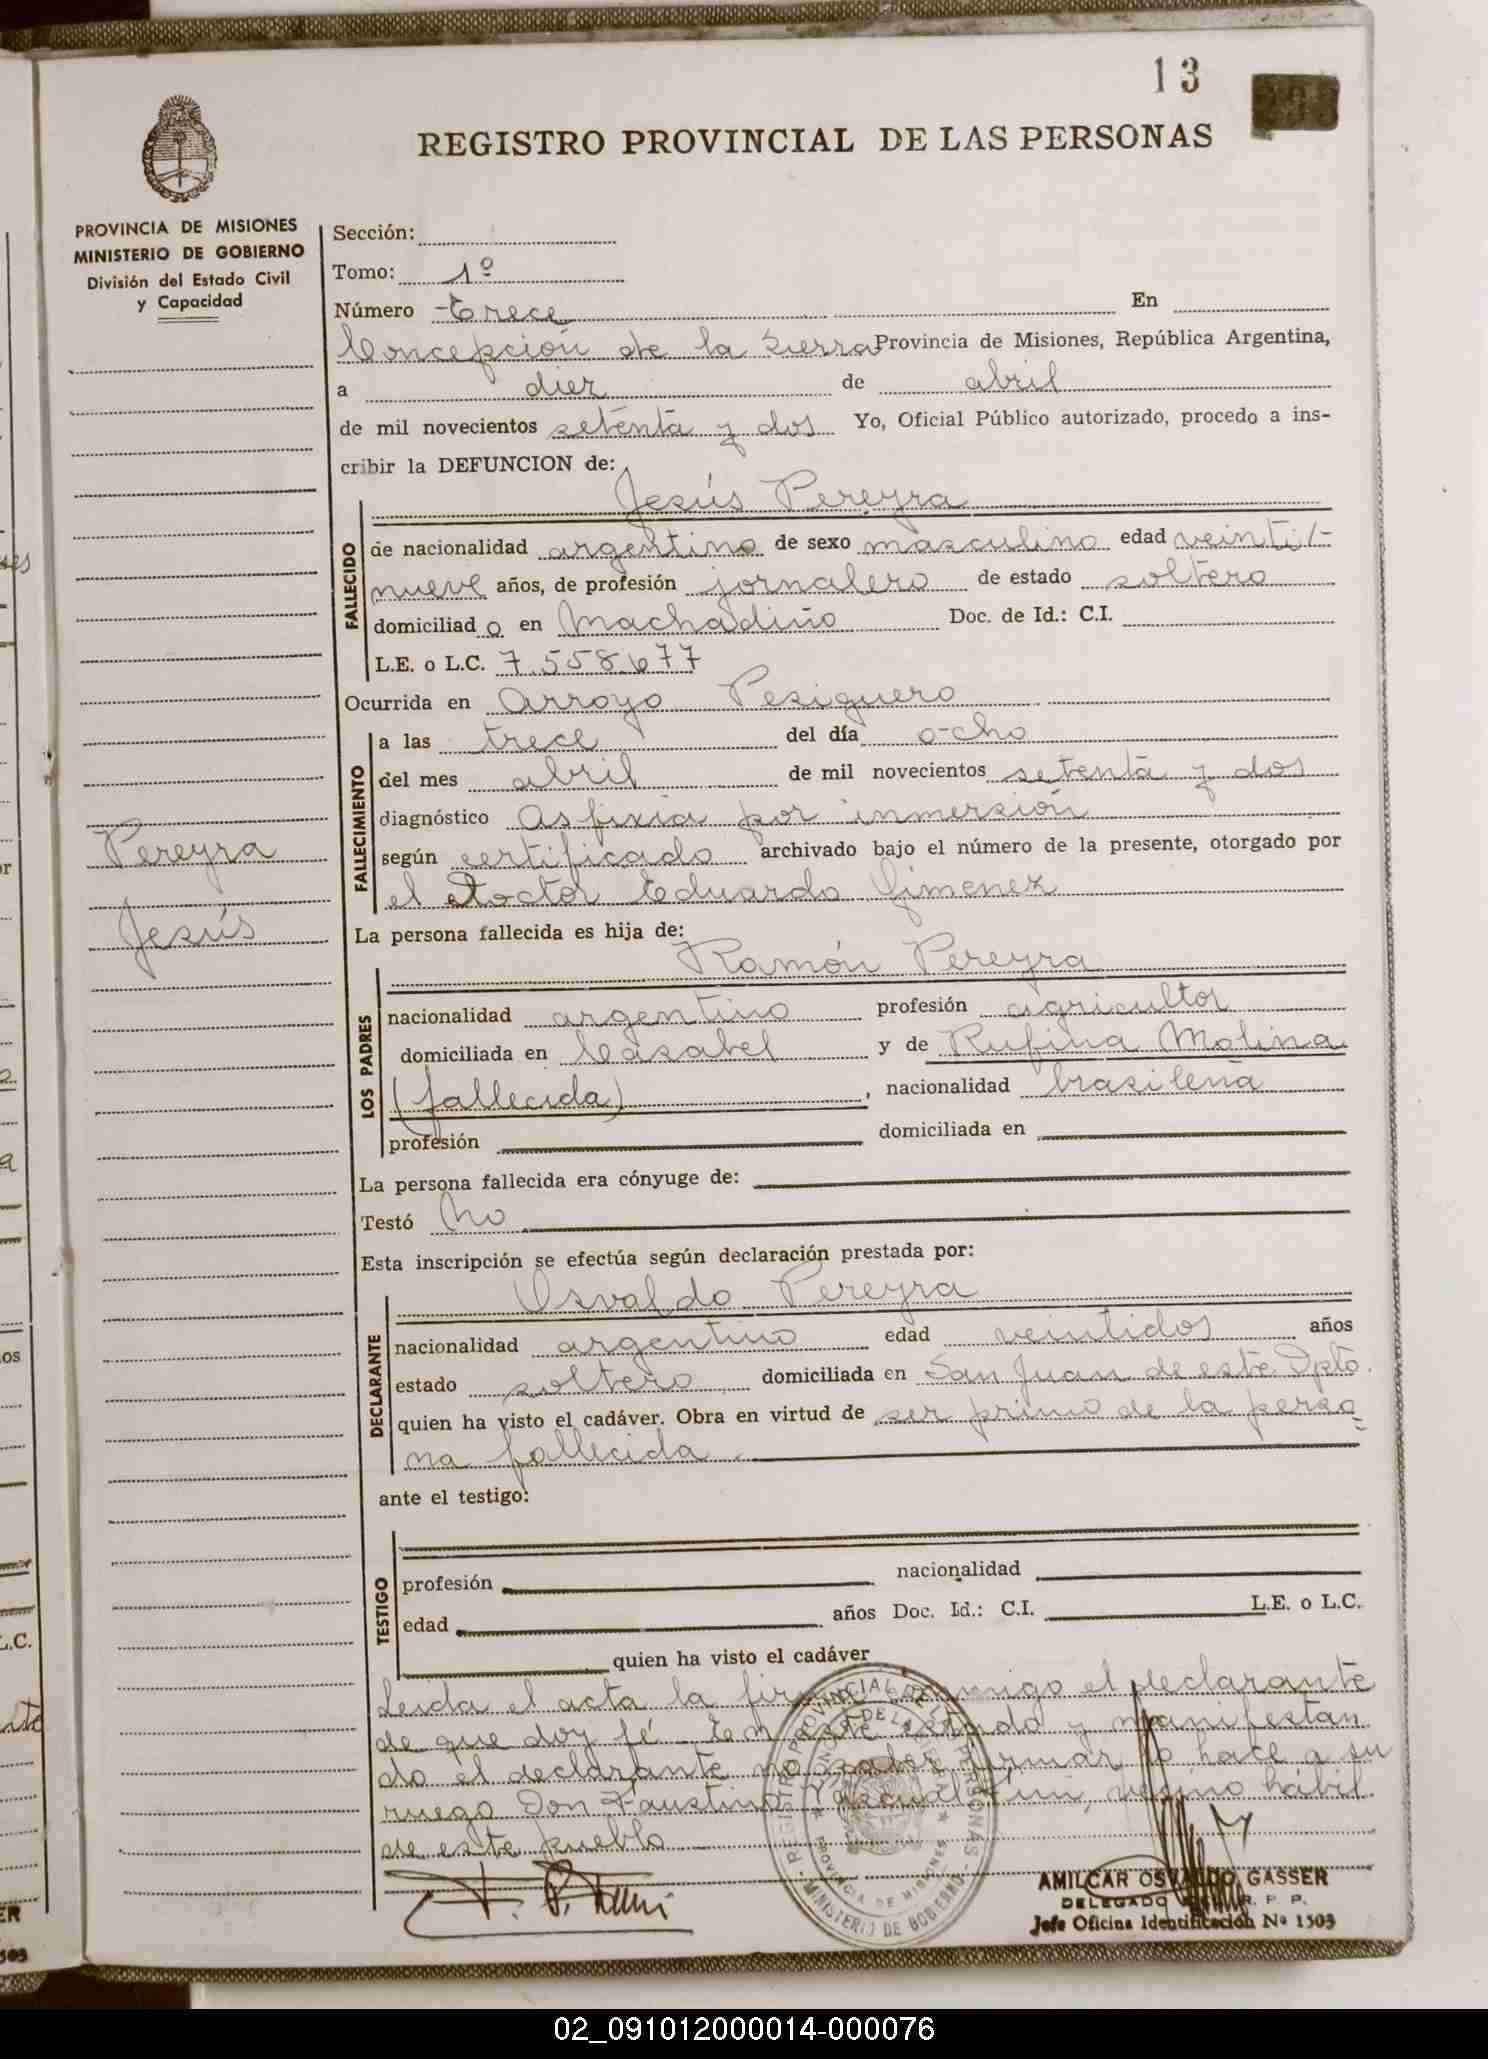 13
REGISTRO PROVINCIAL DE LAS PERSONAS
PROVINCIA DE MISIONES
MINISTERIO DE GOBIERNO
División del Estado Civil
y Capacidad
Sección:
Tomo: 1º
Número Trece En
Concepción de la Sierra Provincia de Misiones, República Argentina,
a diez de abril
de mil novecientos setenta y dos Yo, Oficial Público autorizado, procedo a ins-
cribir la DEFUNCION de:
Jesús Pereyra
FALLECIDO
de nacionalidad argentino de sexo masculino edad veinti/-
nueve años, de profesión jornalero de estado soltero
domiciliado en Machadiño Doc. de Id.: C.I.
L.E. o L.C. 7.558.677
Ocurrida en Arroyo Pesiguero
FALLECIMIENTO
a las trece del día ocho
del mes abril de mil novecientos setenta y dos
diagnóstico Asfixia por inmersión
según certificado archivado bajo el número de la presente, otorgado por
el Doctor Eduardo Gimenez
Pereyra
Jesús
La persona fallecida es hija de:
Ramón Pereyra
LOS PADRES
nacionalidad argentino profesión agricultor
domiciliada en Casabel y de Rufina Molina
(fallecida), nacionalidad brasileña
profesión domiciliada en
La persona fallecida era cónyuge de:
Testó No
Esta inscripción se efectúa según declaración prestada por:
Osvaldo Pereyra
DECLARANTE
nacionalidad argentino edad veintidos años
estado soltero domiciliada en San Juan de este Dpto.
quien ha visto el cadáver. Obra en virtud de ser primo de la perso=
na fallecida
ante el testigo:
TESTIGO
profesión nacionalidad
edad años Doc. Id.: C.I. L.E. o L.C.
quien ha visto el cadáver
Leida el acta la firma conmigo el declarante
de que doy fé. En este estado y manifestan
do el declarante no saber firmar lo hace a su
ruego Don Faustino Pascual, vecino hábil
de este pueblo
REGISTRO PROVINCIAL DE LAS PERSONAS
PROVINCIA DE MISIONES
MINISTERIO DE GOBIERNO
AMILCAR OSVALDO GASSER
DELEGADO R. P. P.
Jefe Oficina Identificación Nº 1503
02_091012000014-000076